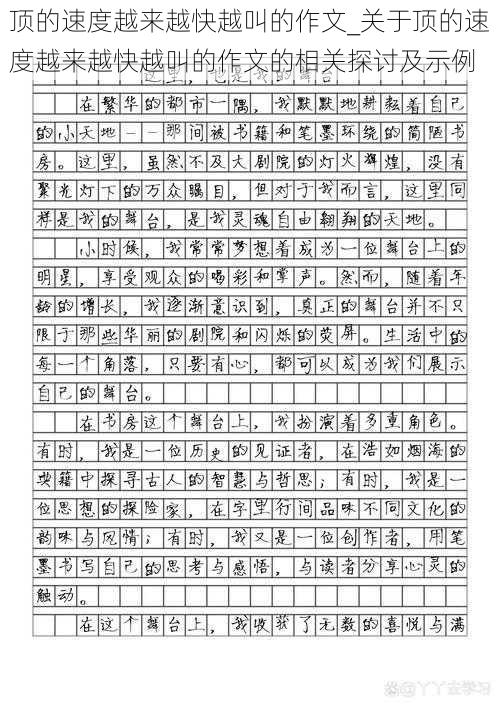 顶的速度越来越快越叫的作文_关于顶的速
度越来越快越叫的作文的相关探讨及示例
这里，也是我的舞台
在繁华的都市一隅，我默默地耕耘着自己
的小天地——那间被书籍和笔墨环绕的简陋书
房。这里，虽然不及大剧院的灯火辉煌，没有
聚光灯下的万众瞩目，但对于我而言，这里同
样是我的舞台，是我灵魂自由翱翔的天地。
小时候，我常常梦想着成为一位舞台上的
明星，享受观众的喝彩和掌声。然而，随着年
龄的增长，我逐渐意识到，真正的舞台并不只
限于那些华丽的剧院和闪烁的荧屏。生活中的
每一个角落，只要有心，都可以成为我们展示
自己的舞台。
在书房这个舞台上，我扮演着多重角色。
有时，我是一位历史的见证者，在浩如烟海的
典籍中探寻古人的智慧与哲思；有时，我是一
位思想的探险家，在字里行间品味不同文化的
韵味与风情；有时，我又是一位创作者，用笔
墨书写自己的思考与感悟，与读者分享心灵的
触动。
在这个舞台上，我收获了无数的喜悦与满
@丫丫去学习